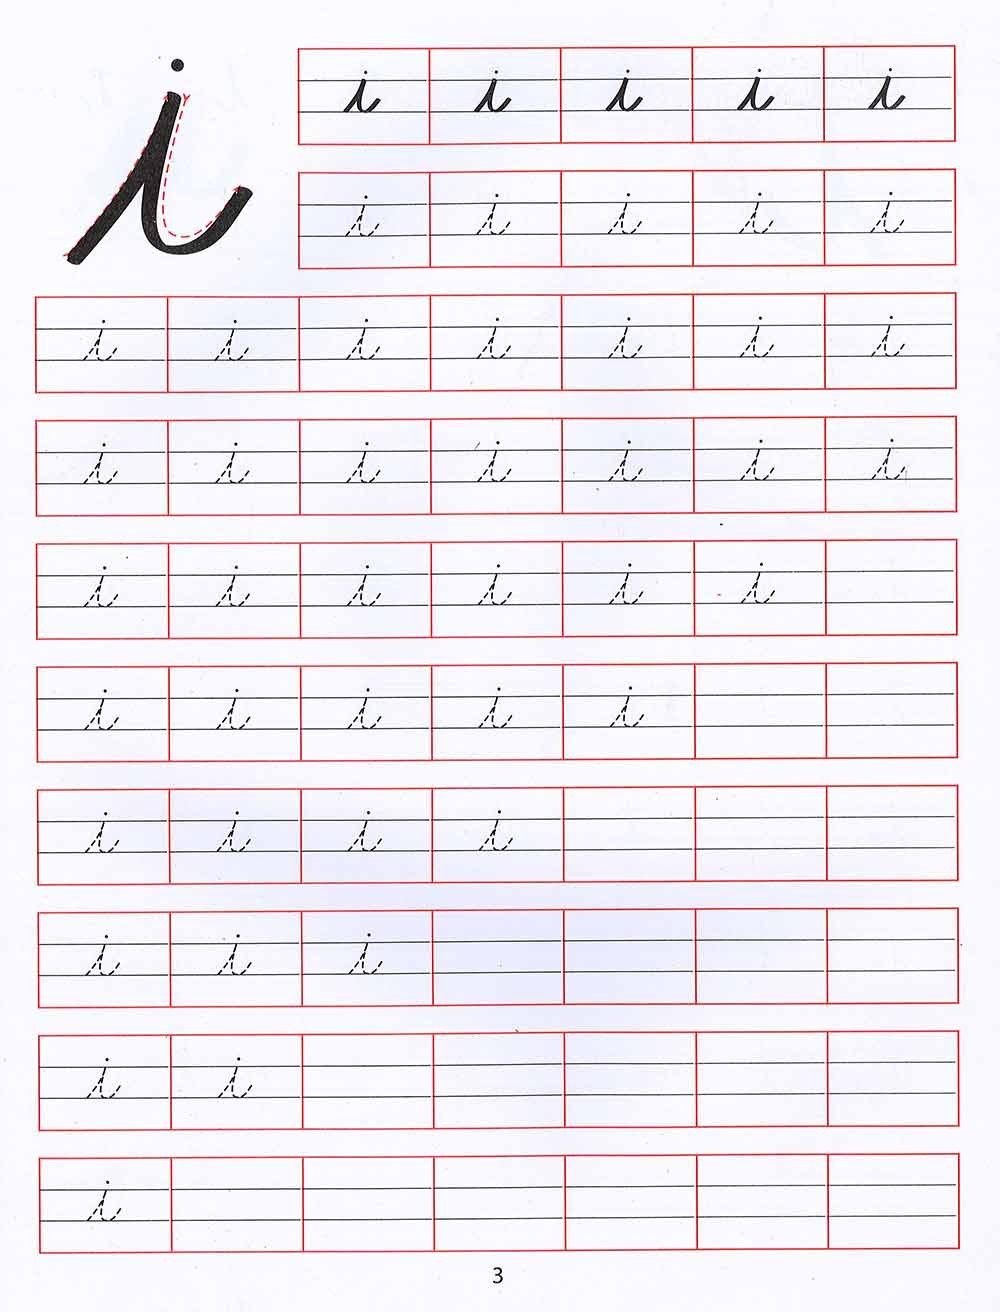 i
i i i i i
i i i i i
i i i i i i i
i i i i i i i
i i i i i i
i i i i i
i i i i
i i i
i i
i
3